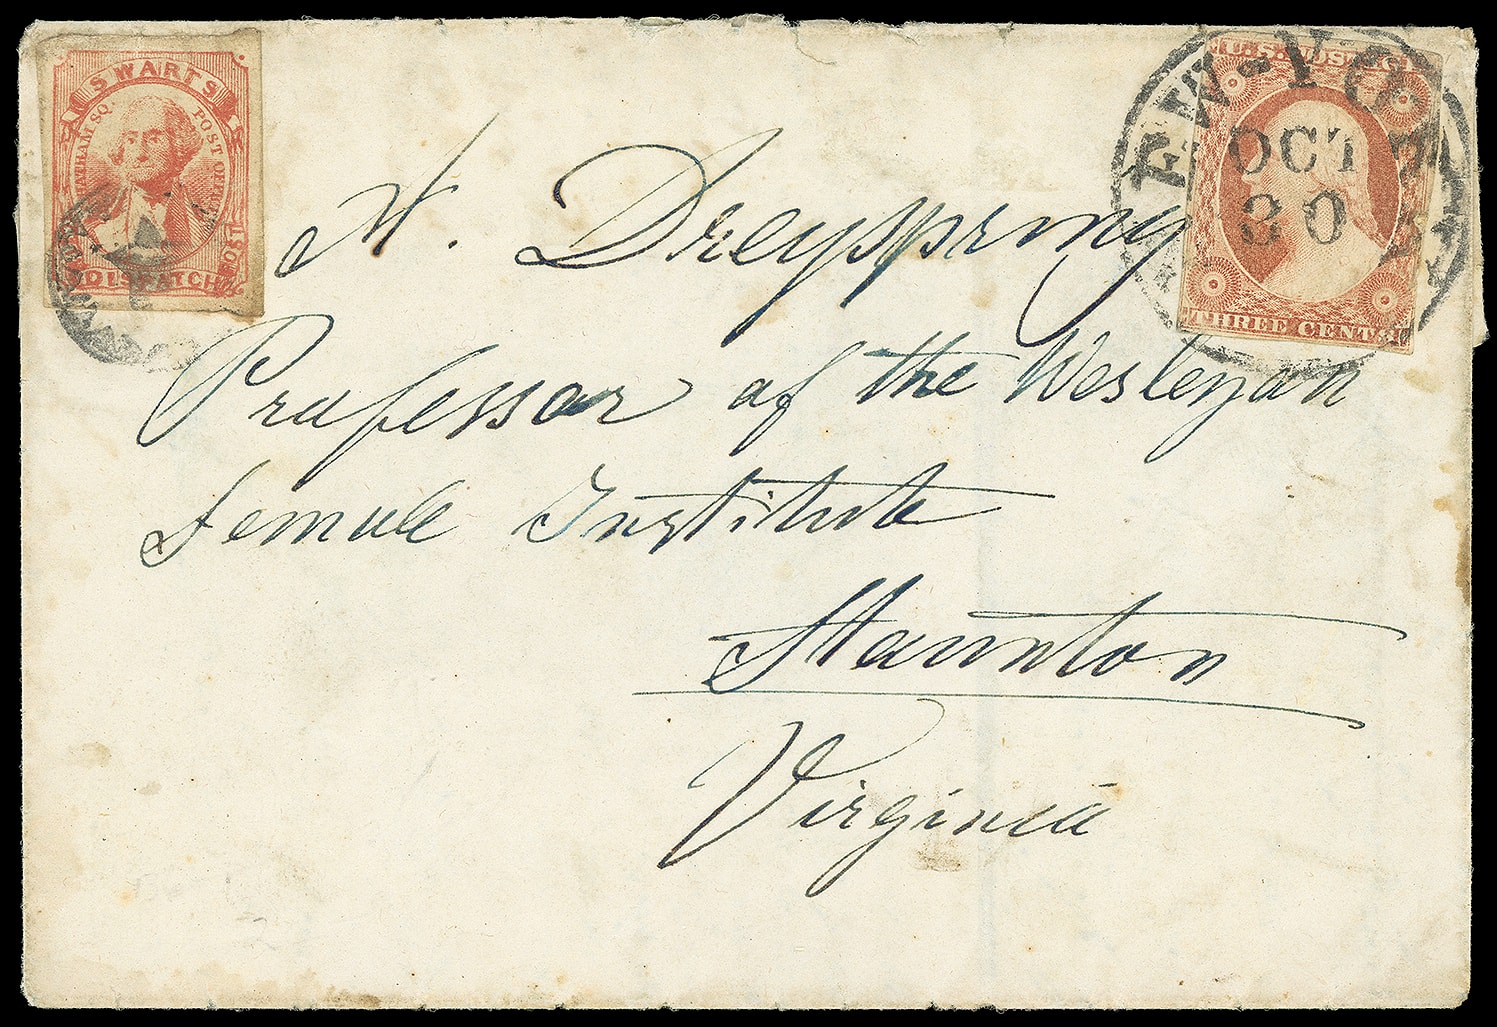 SWARTS
CHATHAM SQ. POST OFFICE
POST
DISPATCH
U.S. POSTAGE
NEW-YORK
OCT
30
THREE CENTS
A. Dreyspring
Professor of the Wesleyan
Female Institute
Staunton
Virginia